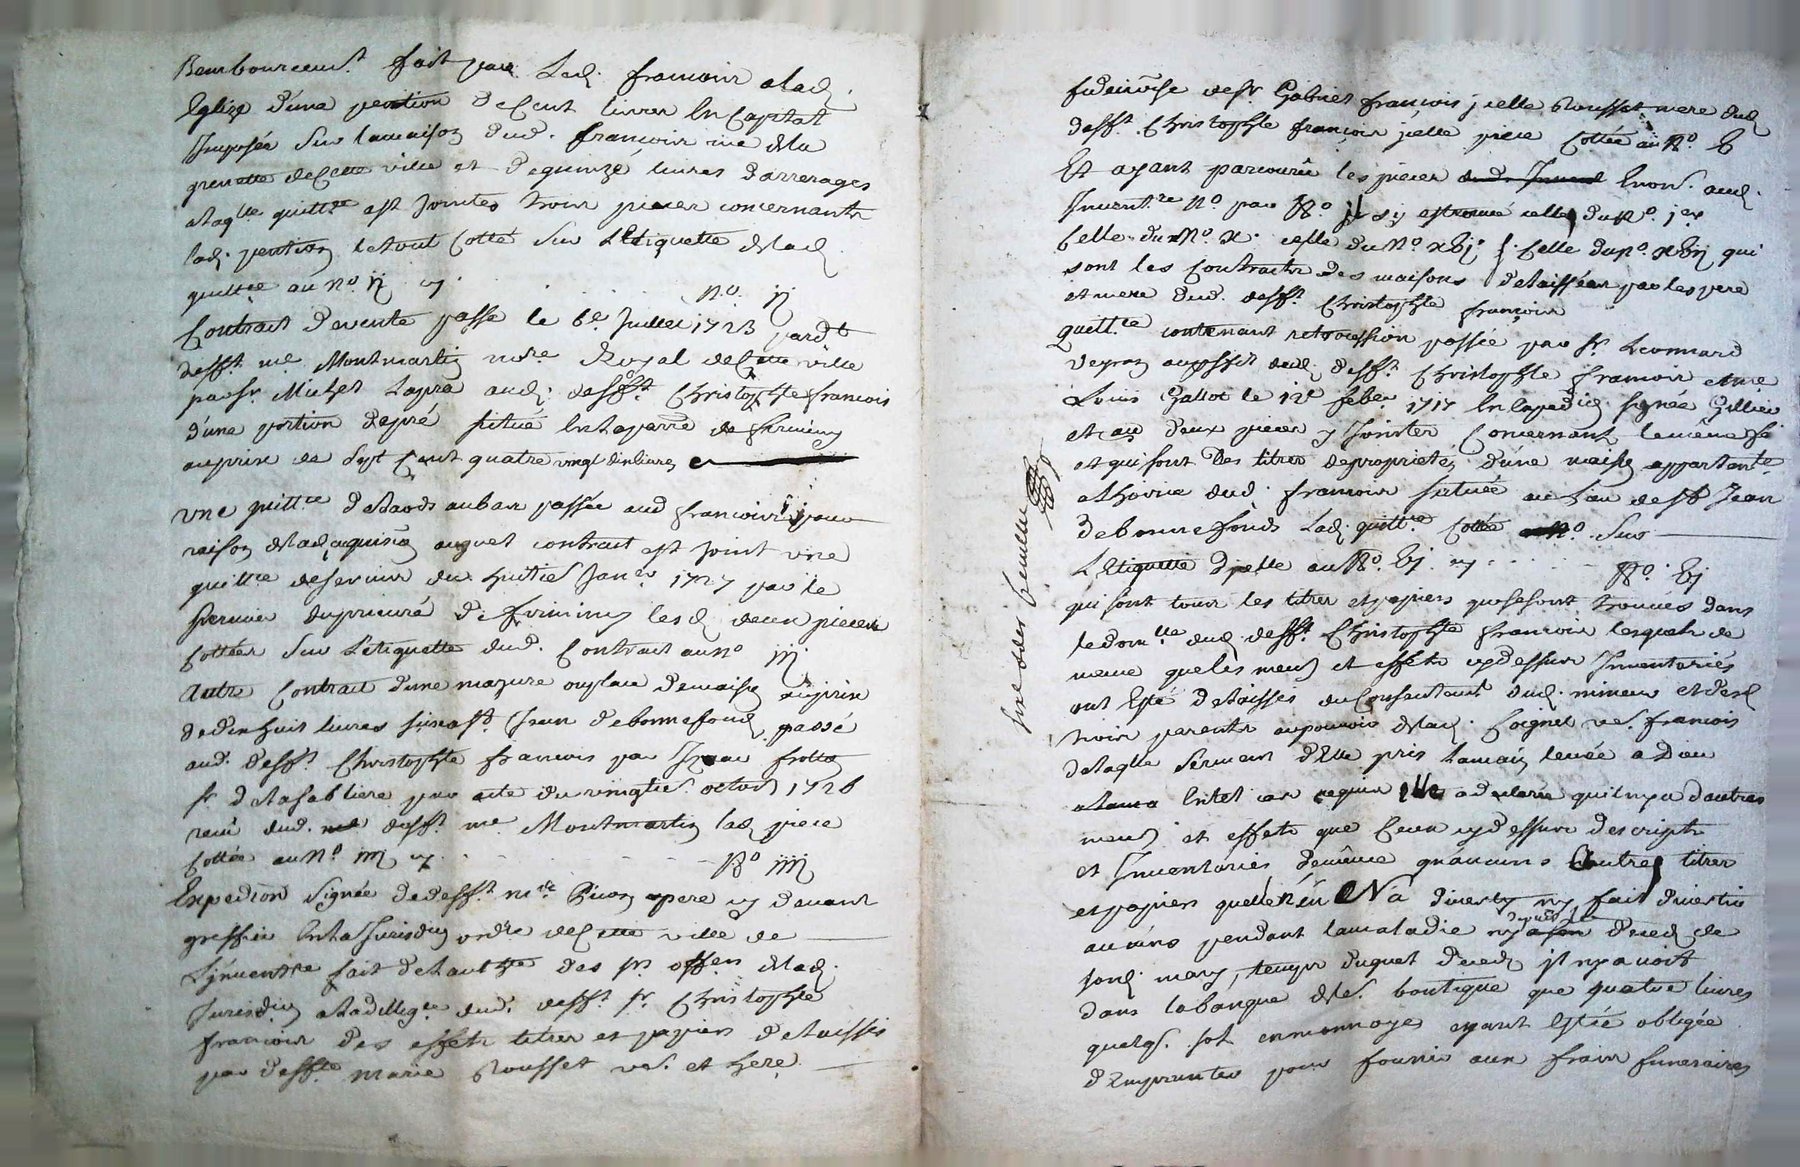 Rembourcemt. fait par Led. francoix alad.
Eglize d'une pention de Cent livres En Capital
Imposée Sur lamaison dud. francoix rüe dela
grenette deCette ville et de quinze livres d'arrerages
alaqlle quittce est Jointes trois pieces concernants
lad. pention letout Cotté Sur L'Etiquette delad.
quittce au No. ij
No. ij
Contrat devente passé le 6e Juillet 1723 pardt
defft me Montmartin nore Royal deCette ville
par sr. Michel Lapra aud. defft Christophle francois
d'une portion depré Situé En laparre de firminy
auprix de Sept Cent quatre vingt dix livres
une quittce delaods auban passée aud francoix pour
raison delad. acquisition auquel contract est Joint une
quittce deservis du huitie Janer 1727 par le
fermier duprieuré de firminy lesd. deux pieces
Cottées Sur L'etiquette dud. Contract au No iij
Autre Contract d'une mazure ouplace demaison auprix
dedix huit livres sise a St. Jean debonnefond passé
aud. defft. Christophle francois par Izaac frotton
sr delasabliere par acte du vingtie. octob 1726
receu dud. defft. me. Montmartin lad. piece
Cottée au No. iiij
No iiij
Expedion Signée dedefft. me Pierre pere cy devant
greffier En la Jurisdion ordre deCette ville de
L'inventre fait delautte des srs offers delad.
Jurisdion aladilligce dud. defft sr. Christophle
francoix des effets titres et papiers delaissés
par deffte marie Rousset ve. et here.
fideicõise desr. Gabriel francois icelle Rousset mere dud.
defft. Christophle françois icelle piece Cottée au No. V
Et ayant parcourû les pieces Enon. aud.
Inventre No. par No. il s'y est trouvé celle du No. 1er
Celle du No. x. celle du No xvj. Celle du No. xviij qui
sont les Contracts des maisons delaissées par les pere
et mere dud. defft. Christophle françois
quittce contenant retrocession passée par sr. Leonnard
deyron auproffit dud. defft. Christophle francoix et me
Louis Gallot le 12e feber 1717 En Expedion Signée Gillier
et au deux pieces y Jointes Concernant lemême fé
et qui sont les titres depropriétés d'une maison appartente
alhoirie dud. francoix Située au lieu de St Jean
Debonnefonds Lad. quittce Cottée Sur
L'Etiquette d'icelle au No. vj.
No. vj
qui sont tous les titres et papiers quise sont trouvés dans
ledomlle dud. defft. Christophle francoix lesquels de
meme que les meub. et effets cy dessus Inventoriés
ont Esté delaissés du Consentement dud. mineur et desd.
trois parents aupouvoir delad. Coignet ve. francois
delaqlle serment d'Elle pris lamain levée a Dieu
En tel cas requis Elle a declaré qu'il n'y a d'autres
meub. et effets que Ceux cy dessus descripts
et Inventoriés, demême qu'aucuns autres titres
et papiers quelle N'a diverty ny fait divertir
aucuns pendant lamaladie ny depuis le deced. de
sond. mary, temps duquel deced. il n'y avoit
dans labanque dela boutique que quatre livres
quelqs. sol en monnoyes ayant Estée obligée
d'Emprunter pour fournir aux fraix funeraires